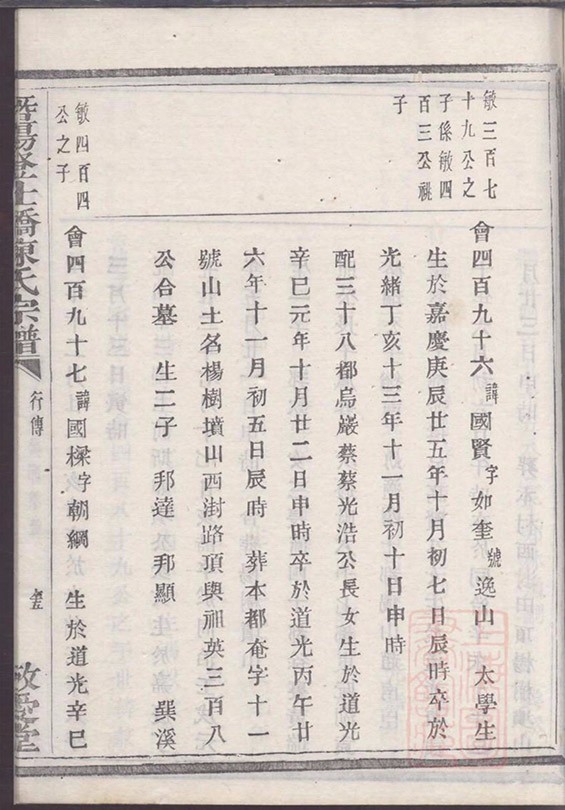 敏三百七
十九公之
子係敏四
百三公祧
子
會四百九十六諱國賢字如奎號逸山 太學生
生於嘉慶庚辰廿五年十月初七日辰時卒於
光緒丁亥十三年十一月初十日申時
配三十八都烏巖蔡蔡光浩公長女生於道光
辛巳元年十月廿二日申時卒於道光丙午廿
六年十一月初五日辰時 葬本都奄字十一
號山土名楊樹墳山西封路頂與祖英三百八
公合墓 生二子 邦達 邦顯 巽溪
敏四百四
公之子
會四百九十七諱國樑字朝綱 生於道光辛巳
暨陽登仕橋陳氏宗譜
行傳
敬愛堂